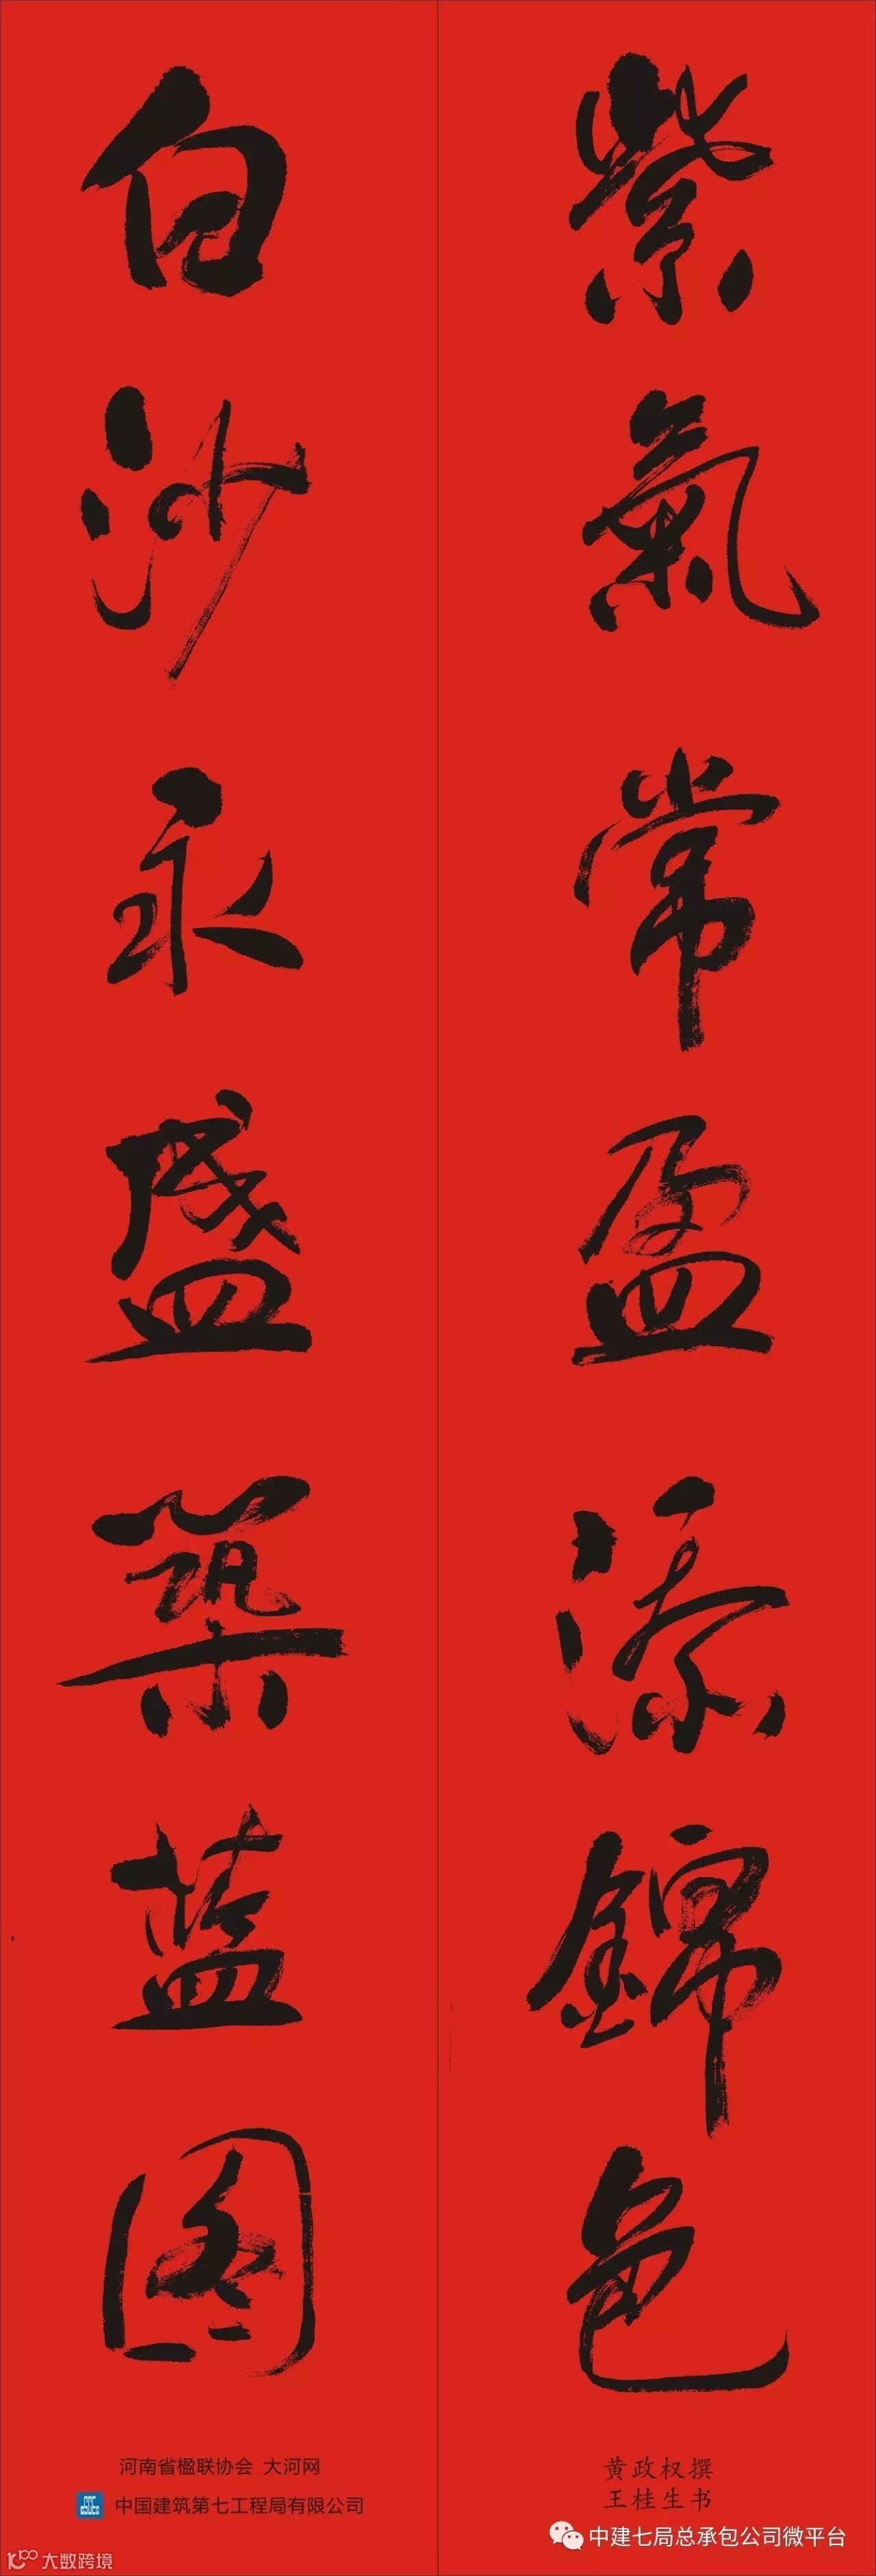 紫氣常盈添錦色
白沙永盛築蓝图
黄政权撰
王桂生书
河南省楹联协会 大河网
CSCEC 中国建筑第七工程局有限公司
中建七局总承包公司微平台
大数跨境